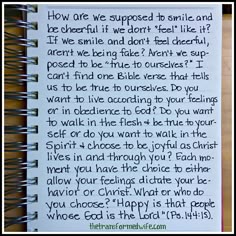 How are we supposed to smile and
be cheerful if we don't "feel" like it?
If we smile and don't feel cheerful,
aren't we being fake? Aren't we sup-
posed to be "true to ourselves?" I
can't find one Bible verse that tells
us to be true to ourselves. Do you
want to live according to your feelings
or in obedience to God? Do you want
to walk in the flesh & be true to your-
self or do you want to walk in the
Spirit & choose to be joyful as Christ
lives in and through you? Each mo-
ment you have the choice to either
allow your feelings dictate your be-
havior or Christ. What or who do
you choose? "Happy is that people
whose God is the Lord" (Ps. 144:15).
thetransformedwife.com